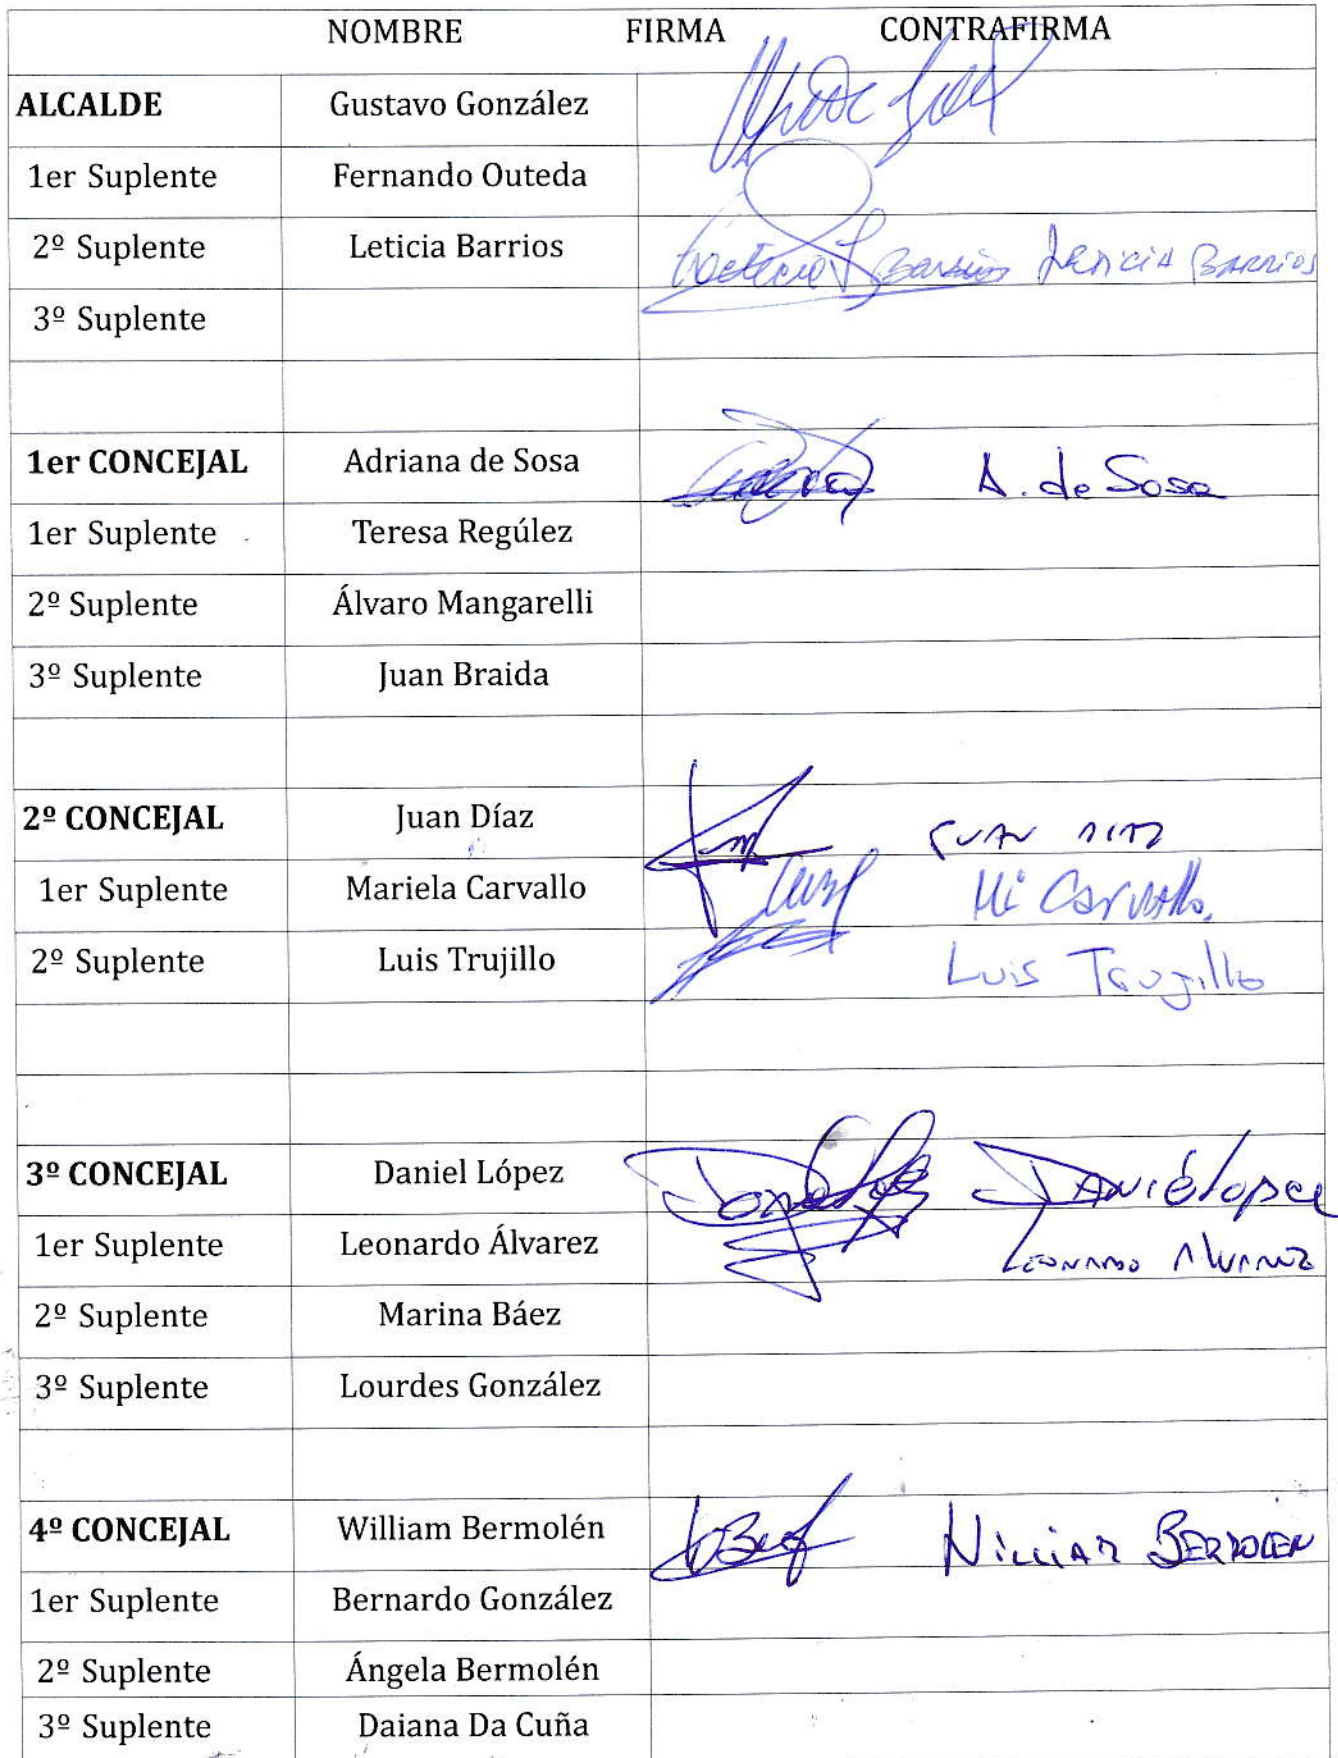 NOMBRE FIRMA CONTRAFIRMA
ALCALDE Gustavo González
1er Suplente Fernando Outeda
2º Suplente Leticia Barrios Leticia Barrios LETICIA BARRIOS
3º Suplente
1er CONCEJAL Adriana de Sosa A. de Sosa
1er Suplente Teresa Regúlez
2º Suplente Álvaro Mangarelli
3º Suplente Juan Braida
2º CONCEJAL Juan Díaz JUAN DIAZ
1er Suplente Mariela Carvallo Carvallo.
2º Suplente Luis Trujillo Luis Trujillo
3º CONCEJAL Daniel López Daniel López
1er Suplente Leonardo Álvarez LEONARDO ALVAREZ
2º Suplente Marina Báez
3º Suplente Lourdes González
4º CONCEJAL William Bermolén WILLIAM BERMOLEN
1er Suplente Bernardo González
2º Suplente Ángela Bermolén
3º Suplente Daiana Da Cuña